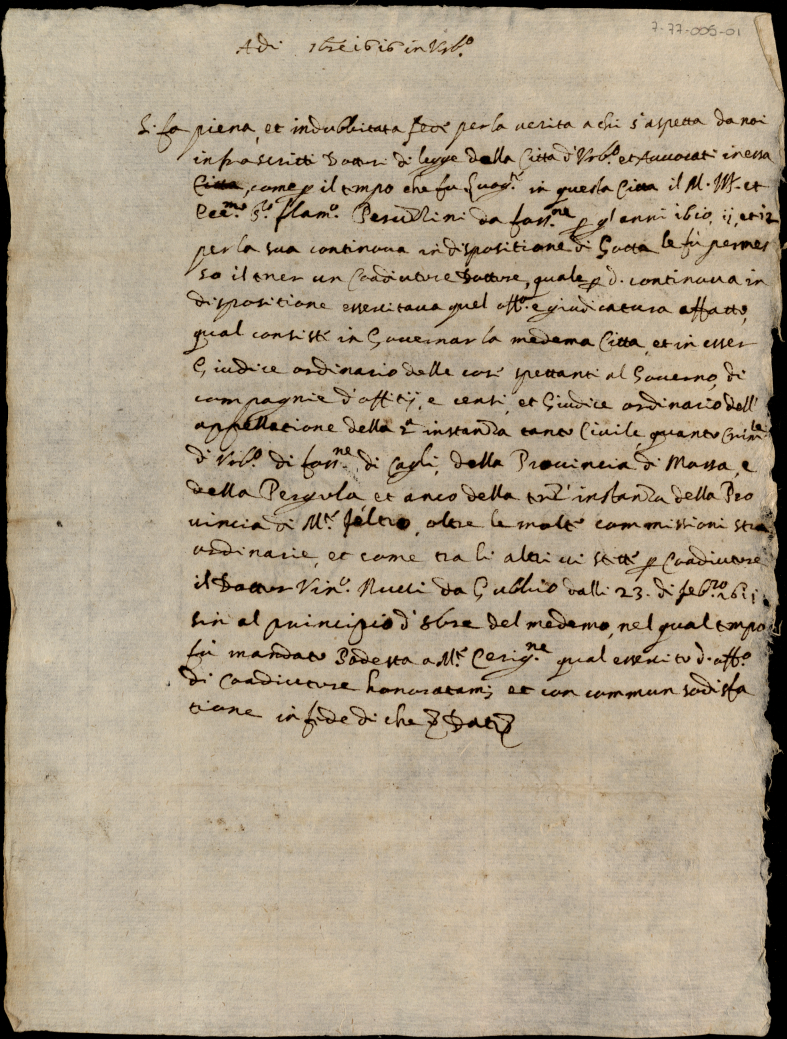 7-77-005-01
Adi 16 1616 in Urb.o
Si fa piena, et indubbitata fede per la verita a chi s'aspetta da noi
infrascritti Dottori di legge della Città d'Urb.o et Avvocati in essa
Citta, come p il tempo che fu in questa Citta il M. Ill. et
Ecc.mo S.r flam.o da foss.ne p gl'anni 1610, ii, et 12
per la sua continova indispositione di Gotta le fù permes
so il tner un Coadiutore Dottore, quale p d. continova in
dispositione essercitava quel off.o e giudicatura affatto,
qual consiste in Governar la medema Citta, et in esser
Giudice ordinario delle cose spettanti al Governo, di
compagnie d'offitij, e censi, et Giudice ordinario dell'
appellatione della 2.a instanza tanto Civile quanto Crim.le
di Urb.o di foss.ne, di Cagli, della Provincia di Massa, e
della Pergola et anco della instanza della Pro
vincia di M.te feltro, oltre le molte commissioni stra
ordinarie, et come tra li altri vi stette p Coadiutore
il Dottor Vin.o Nuti da Gubbio dalli 23. di feb.ro 1611
sin al principio d'8bre del medemo, nel qual tempo
fù mandato Podesta a M.te Cerig.ne qual essercito d. off.o
di Coadiutore honoratam; et con commun sodisfa
tione in fede di che Dat